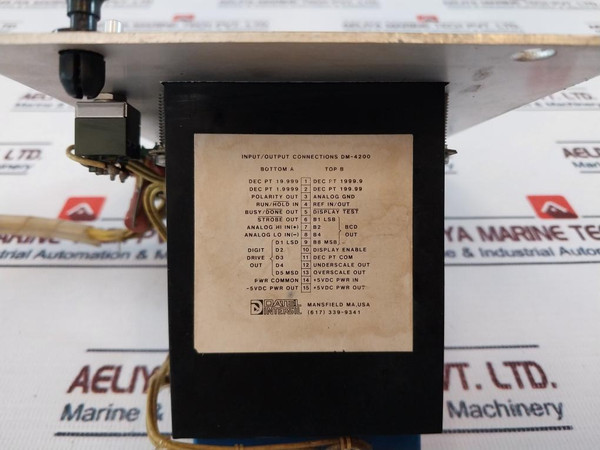 INPUT/OUTPUT CONNECTIONS DM-4200
BOTTOM A TOP B
DEC PT 19.999 1 DEC PT 1999.9
DEC PT 1.9999 2 DEC PT 199.99
POLARITY OUT 3 ANALOG GND
RUN/HOLD IN 4 REF IN/OUT
BUSY/DONE OUT 5 DISPLAY TEST
STROBE OUT 6 B1 LSB
ANALOG HI IN(+) 7 B2 BCD
ANALOG LO IN(-) 8 B4 OUT
D1 LSD 9 B8 MSB
DIGIT D2 10 DISPLAY ENABLE
DRIVE D3 11 DEC PT COM
OUT D4 12 UNDERSCALE OUT
D5 MSD 13 OVERSCALE OUT
PWR COMMON 14 +5VDC PWR IN
-5VDC PWR OUT 15 +5VDC PWR OUT
DATEL INTERSIL
MANSFIELD MA,USA
(617) 339-9341
AELIYA MARINE TECH PVT. LTD.
Marine &
Machinery